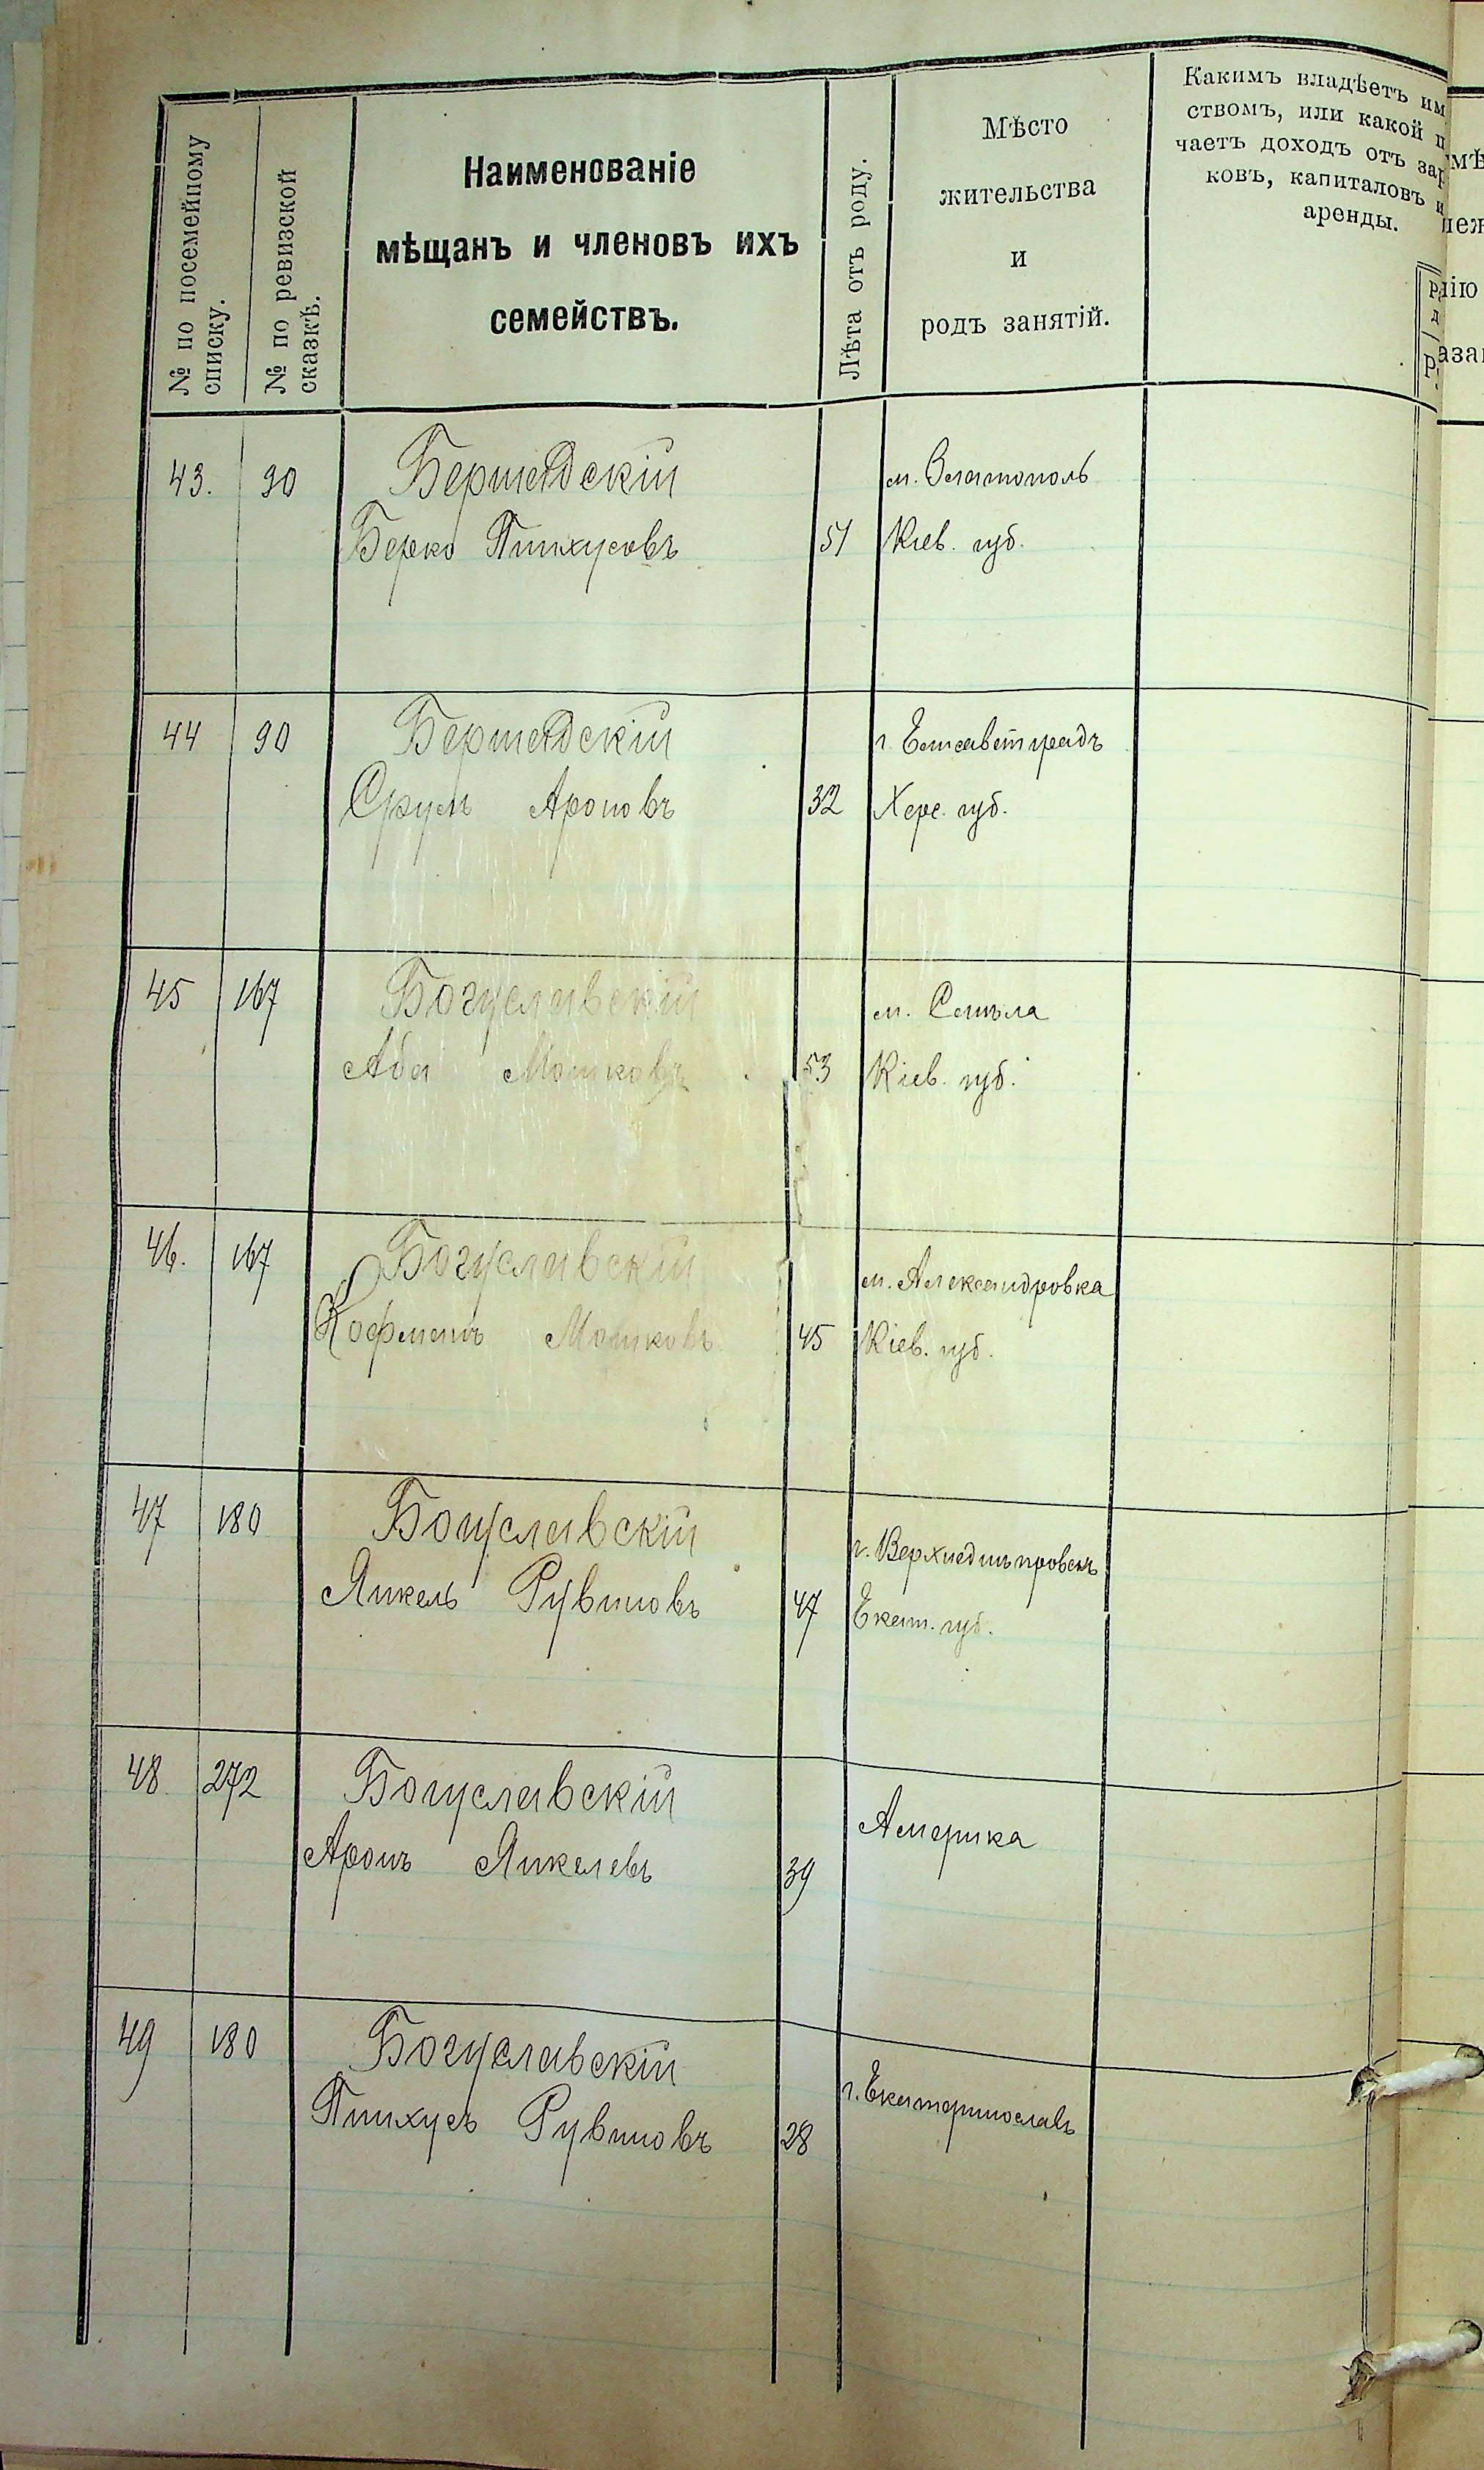 № по посемейному
списку.
№ по ревизской
сказкѣ.
Наименованіе
мѣщанъ и членовъ ихъ
семействъ.
Лѣта отъ роду.
Мѣсто
жительства
и
родъ занятій.
Какимъ владѣетъ им
ствомъ, или какой п
чаетъ доходъ отъ зар
ковъ, капиталовъ и
аренды.
43. 90 Бершадскій м. Златополь
Берко Пинхусовъ 51 Кіев. губ.
44 90 Бершадскій г. Елисаветградъ
Сруль Ароновъ 32 Херс. губ.
45 167 Богуславскій м. Смѣла
Аба Мошковъ 53 Кіев. губ.
46. 167 Богуславскій м. Александровка
Кофманъ Мошковъ 45 Кіев. губ.
47 180 Богуславскій г. Верхнеднѣпровскъ
Янкель Рувиновъ 47 Екат. губ.
48 272 Богуславскій Америка
Аронъ Янкелевъ 39
49 180 Богуславскій г. Екатеринославъ
Пинхусъ Рувиновъ 28